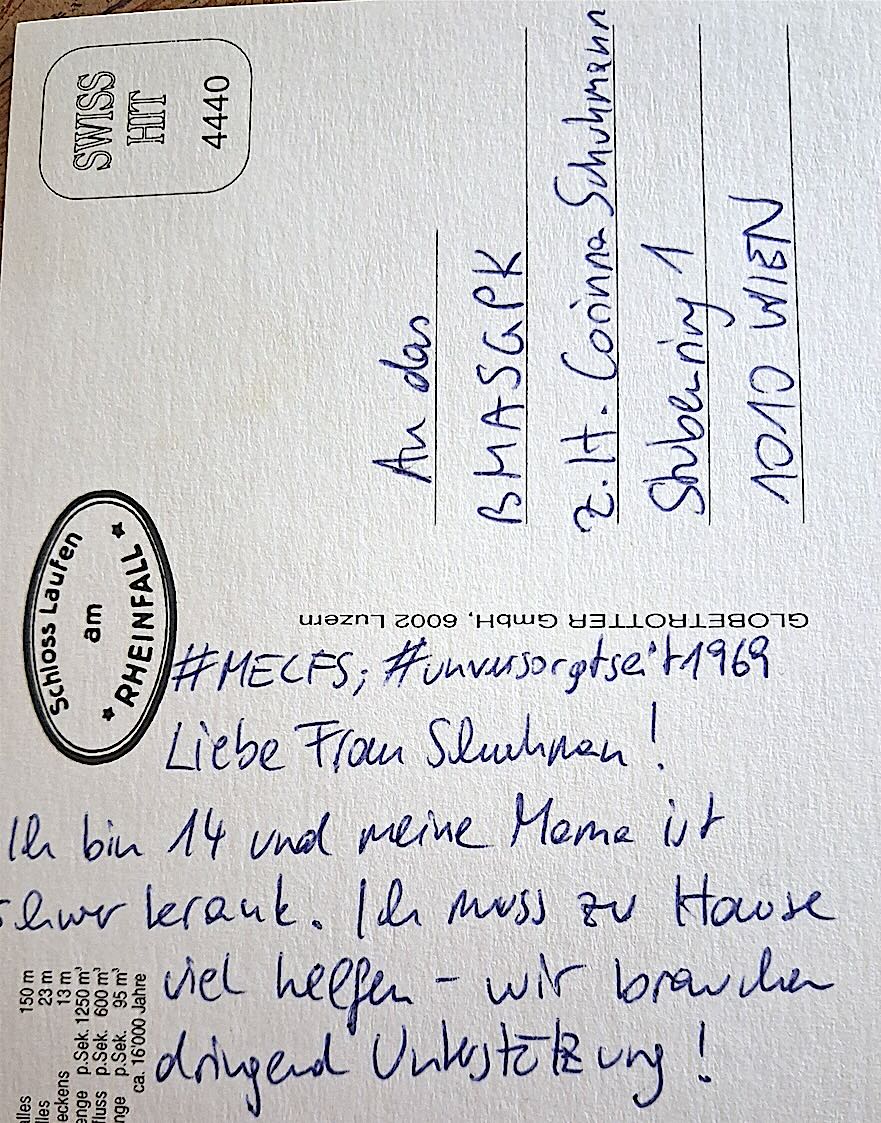 SWISS
HIT
4440
Schloss Laufen
am
RHEINFALL
An das
BMASGPK
z.H. Corinna Schuhmann
Stubenring 1
1010 WIEN
GLOBETROTTER GmbH, 6002 Luzern
#MECFS; #unversorgtseit1969
Liebe Frau Schuhman!
Ich bin 14 und meine Mama ist
schwer krank. Ich muss zu Hause
viel helfen - wir brauchen
dringend Unterstützung!
alles 150 m
lles 23 m
eckens 13 m
enge p.Sek. 1250 m³
fluss p.Sek. 600 m³
nge p.Sek. 95 m³
ca. 16'000 Jahre